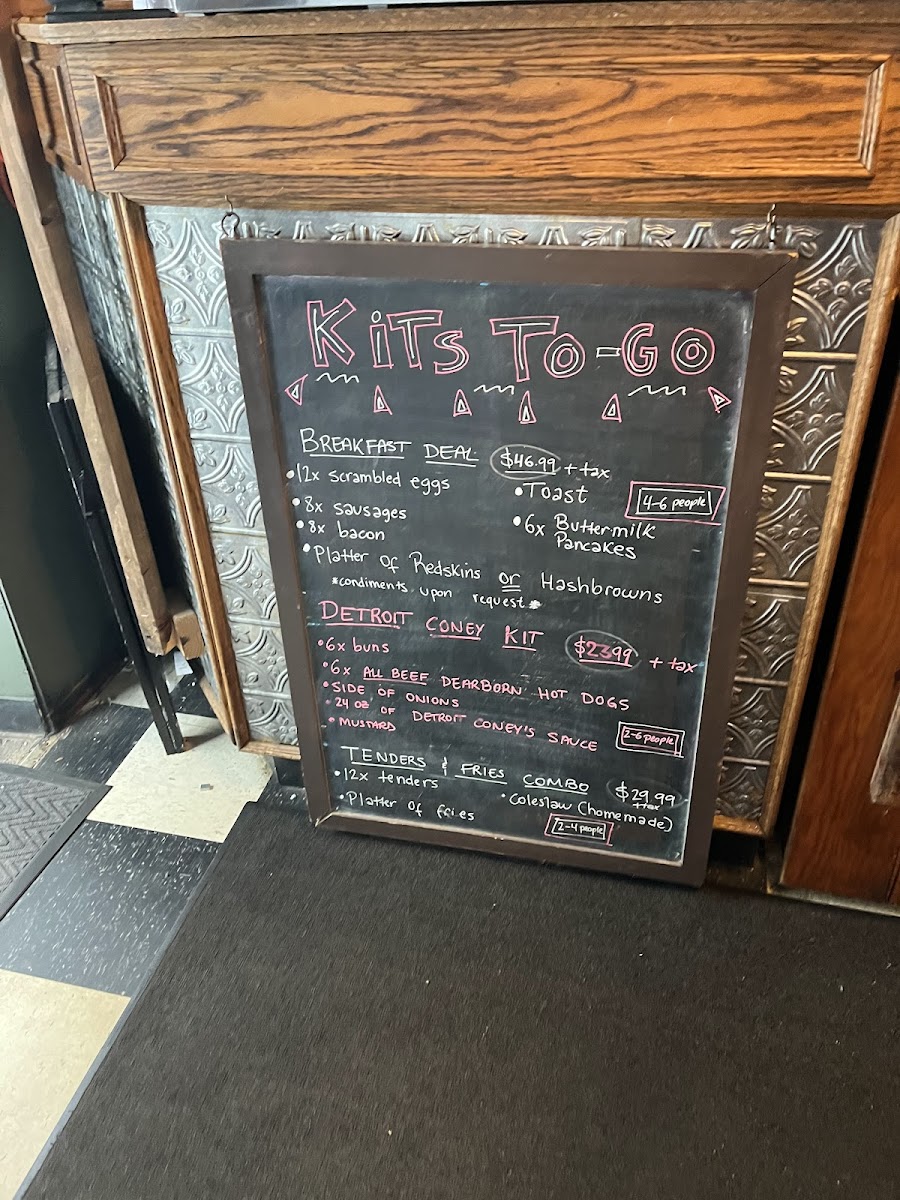 KiTs To-Go
BREAKFAST DEAL $46.99 + tax
•12x scrambled eggs
•Toast
4-6 people
•8x sausages
•6x Buttermilk
Pancakes
•8x bacon
•Platter of Redskins or Hashbrowns
*condiments upon request*
DETROIT CONEY KIT $23.99 + tax
•6x buns
•6x ALL BEEF DEARBORN HOT DOGS
•SIDE OF ONIONS
•24 OZ OF DETROIT CONEY'S SAUCE
•MUSTARD
2-6 people
TENDERS & FRIES COMBO $29.99
+tax
•12x tenders
•Coleslaw (homemade)
•Platter of fries
2-4 people